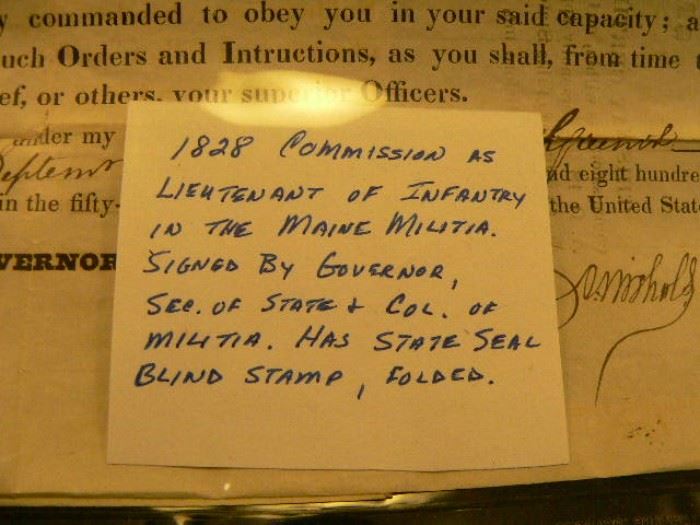 y commanded to obey you in your said capacity; a
uch Orders and Intructions, as you shall, from time t
ef, or others, your superior Officers.
under my
Septem
nd eight hundre
in the fifty-
the United State
VERNOR
1828 COMMISSION AS
LIEUTENANT OF INFANTRY
IN THE MAINE MILITIA.
SIGNED BY GOVERNOR,
SEC. OF STATE & COL. OF
MILITIA. HAS STATE SEAL
BLIND STAMP, FOLDED.